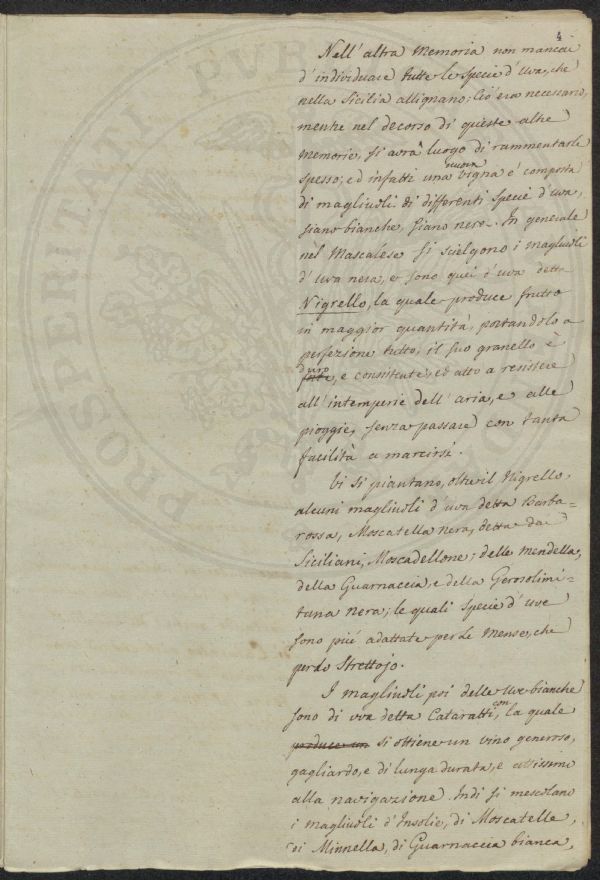 4
Nell' altra Memoria non mancai
d' individuare tutte le specie d' uva, che
nella Sicilia allignano; Ciò era necessario,
mentre nel decorso di queste altre
Memorie, si avrà luogo di rammentarle
spesso; ed infatti una nuova vigna è composta
di magliuoli di differenti specie d' uva,
siano bianche, siano nere. In generale
nel Mascalese si scielgono i magliuoli
d' uva nera, e sono quei d' uva detta
Nigrello, la quale produce frutto
in maggior quantità, portandolo a
perfezione tutto; il suo granello è
forte duro, e consistente, ed atto a resistere
all' intemperie dell' aria, e alle
pioggie, senza passare con tanta
facilità a marcirsi.
Vi si piantano, oltre il Nigrello,
alcuni magliuoli d' uva detta Barba=
rossa, Moscatella nera, detta da
Siciliani, Moscadellone; delle mendella,
della Guarnaccia, e della Gerosolimi=
tana nera; le quali specie d' uve
sono più adattate per le mense, che
per lo Strettojo.
I magliuoli poi delle uve bianche
sono di uva detta Cataratti, con la quale
produce un si ottiene un vino generoso,
gagliardo, e di lunga durata, e attissimo
alla navigazione. Indi si mescolano
i magliuoli d' Insolie, di Moscatelle,
di Minnella, di Guarnaccia bianca,
PROSPERITATI PUBL